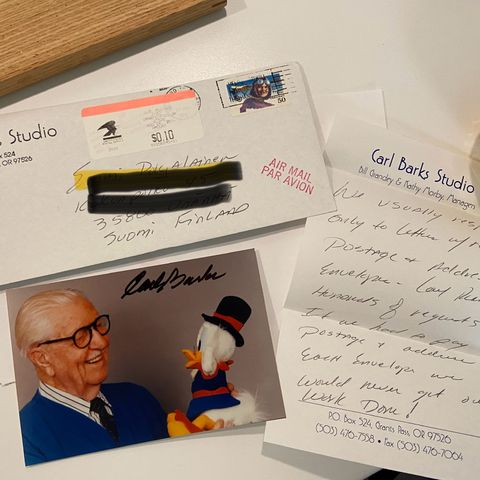 s Studio
Box 524
, OR 97526
$0.10
50
AIR MAIL
PAR AVION
SUOMI FINLAND
Carl Barks
Carl Barks Studio
Bill Grandey & Kathy Morby, Managem
We usually resp
only to letters w/
Postage & Addre
Envelopes - Carl
Hundreds of requests
If we had to pay
Postage & address
Each Envelope we
Would never get our
Work Done!
P.O. Box 524, Grants Pass, OR 97526
(503) 476-7558 • Fax (503) 476-7064